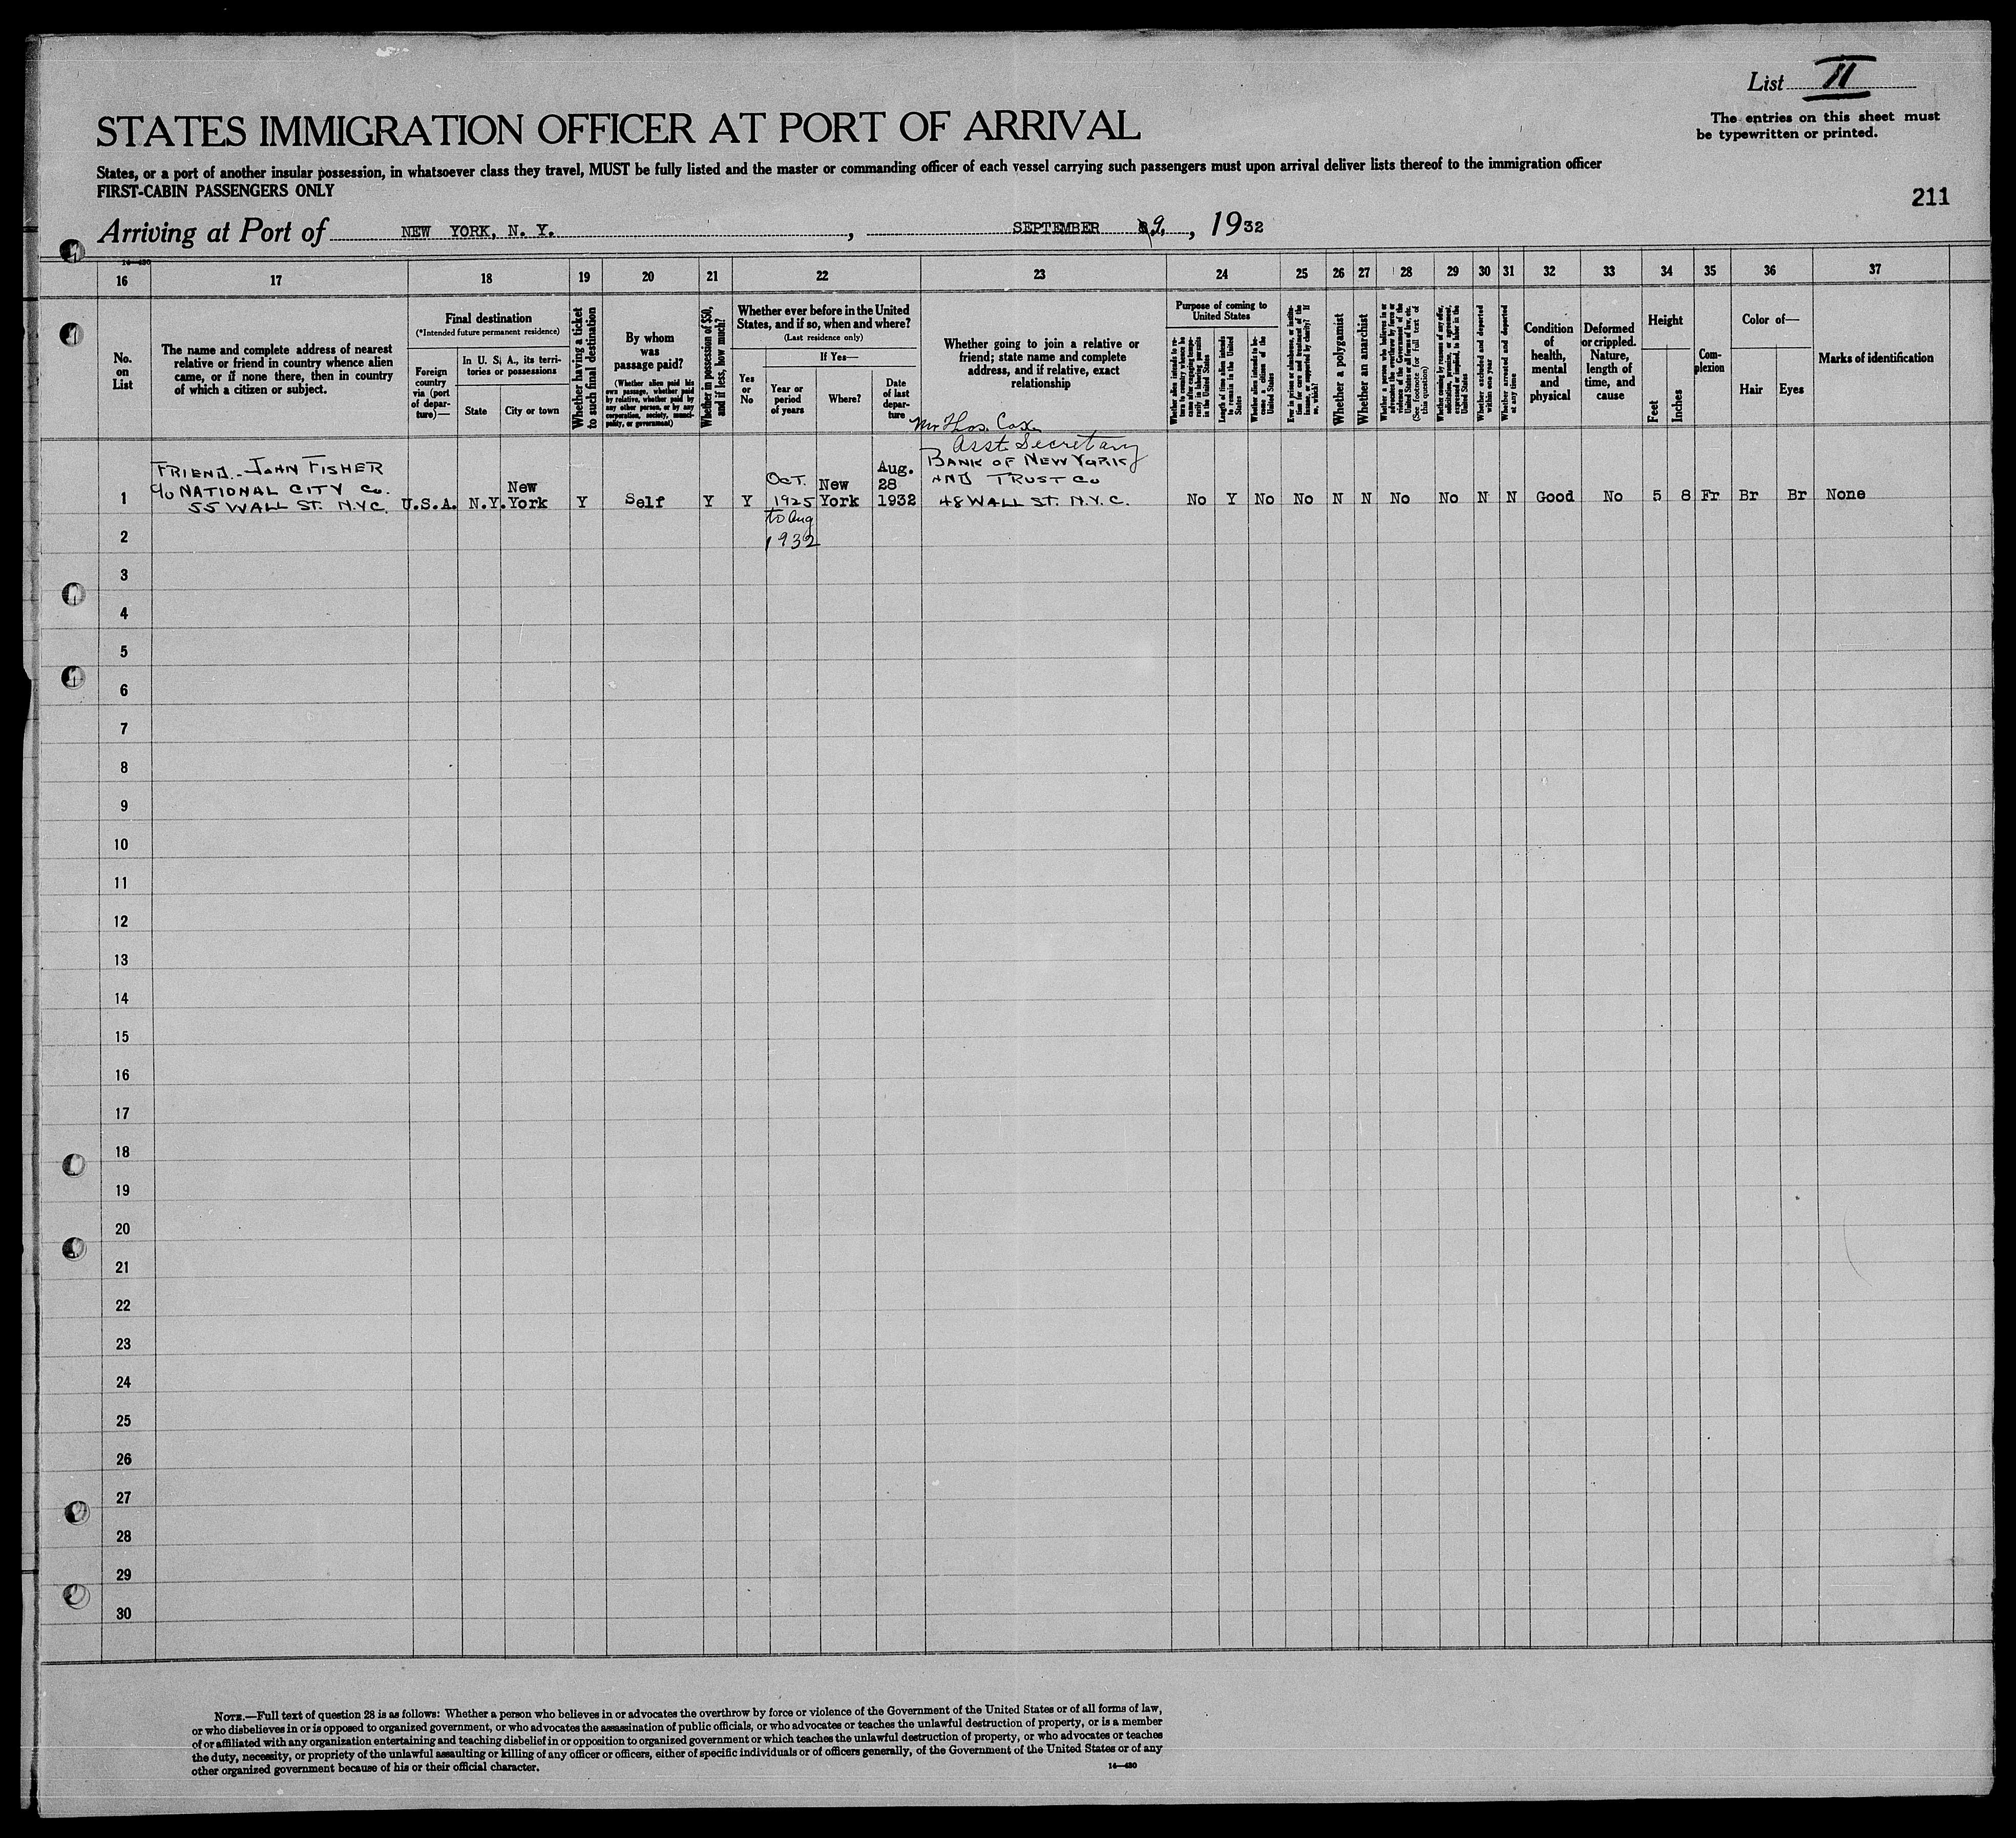 List II
The entries on this sheet must
be typewritten or printed.
STATES IMMIGRATION OFFICER AT PORT OF ARRIVAL
States, or a port of another insular possession, in whatsoever class they travel, MUST be fully listed and the master or commanding officer of each vessel carrying such passengers must upon arrival deliver lists thereof to the immigration officer
FIRST-CABIN PASSENGERS ONLY
211
Arriving at Port of NEW YORK, N. Y. , SEPTEMBER 9, , 1932
14—430
16 17 18 19 20 21 22 23 24 25 26 27 28 29 30 31 32 33 34 35 36 37
No.
on
List
The name and complete address of nearest
relative or friend in country whence alien
came, or if none there, then in country
of which a citizen or subject.
Final destination
(*Intended future permanent residence)
Foreign
country
via (port
of depar-
ture)—
In U. S. A., its terri-
tories or possessions
State
City or town
Whether having a ticket
to such final destination
By whom
was
passage paid?
(Whether alien paid his
own passage, whether paid
by relative, whether paid by
any other person, or by any
corporation, society, munici-
pality, or government)
Whether in possession of $50,
and if less, how much?
Whether ever before in the United
States, and if so, when and where?
(Last residence only)
Yes
or
No
If Yes—
Year or
period
of years
Where?
Date
of last
depar-
ture
Whether going to join a relative or
friend; state name and complete
address, and if relative, exact
relationship
Purpose of coming to
United States
Whether alien intends to re-
turn to country whence he
came after engaging tempo-
rarily in laboring pursuits
in the United States
Length of time alien intends
to remain in the United
States
Whether alien intends to be-
come a citizen of the
United States
Ever in prison or almshouse, or institu-
tion for care and treatment of the
insane, or supported by charity? If
so, which?
Whether a polygamist
Whether an anarchist
Whether a person who believes in or
advocates the overthrow by force or
violence of the Government of the
United States or all forms of law, etc.
(See footnote for full text of
this question)
Whether coming by reason of any offer,
solicitation, promise, or agreement,
expressed or implied, to labor in the
United States
Whether excluded and deported
within one year
Whether arrested and deported
at any time
Condition
of
health,
mental
and
physical
Deformed
or crippled.
Nature,
length of
time, and
cause
Height
Feet
Inches
Com-
plexion
Color of—
Hair
Eyes
Marks of identification
1
FRIEND - JOHN FISHER
c/o NATIONAL CITY Co.
55 WALL ST. N.Y.C.
U.S.A.
N.Y.
New
York
Y
Self
Y
Y
OCT.
1925
to Aug
1932
New
York
Aug.
28
1932
Mr Thos. Cox
Asst Secretary
BANK OF NEW YORK
AND TRUST CO
48 WALL ST. N.Y.C.
No Y No No N N No No N N Good No 5 8 Fr Br Br None
2
3
4
5
6
7
8
9
10
11
12
13
14
15
16
17
18
19
20
21
22
23
24
25
26
27
28
29
30
NOTE.—Full text of question 28 is as follows: Whether a person who believes in or advocates the overthrow by force or violence of the Government of the United States or of all forms of law,
or who disbelieves in or is opposed to organized government, or who advocates the assassination of public officials, or who advocates or teaches the unlawful destruction of property, or is a member
of or affiliated with any organization entertaining and teaching disbelief in or opposition to organized government or which teaches the unlawful destruction of property, or who advocates or teaches
the duty, necessity, or propriety of the unlawful assaulting or killing of any officer or officers, either of specific individuals or of officers generally, of the Government of the United States or of any
other organized government because of his or their official character.
14—430